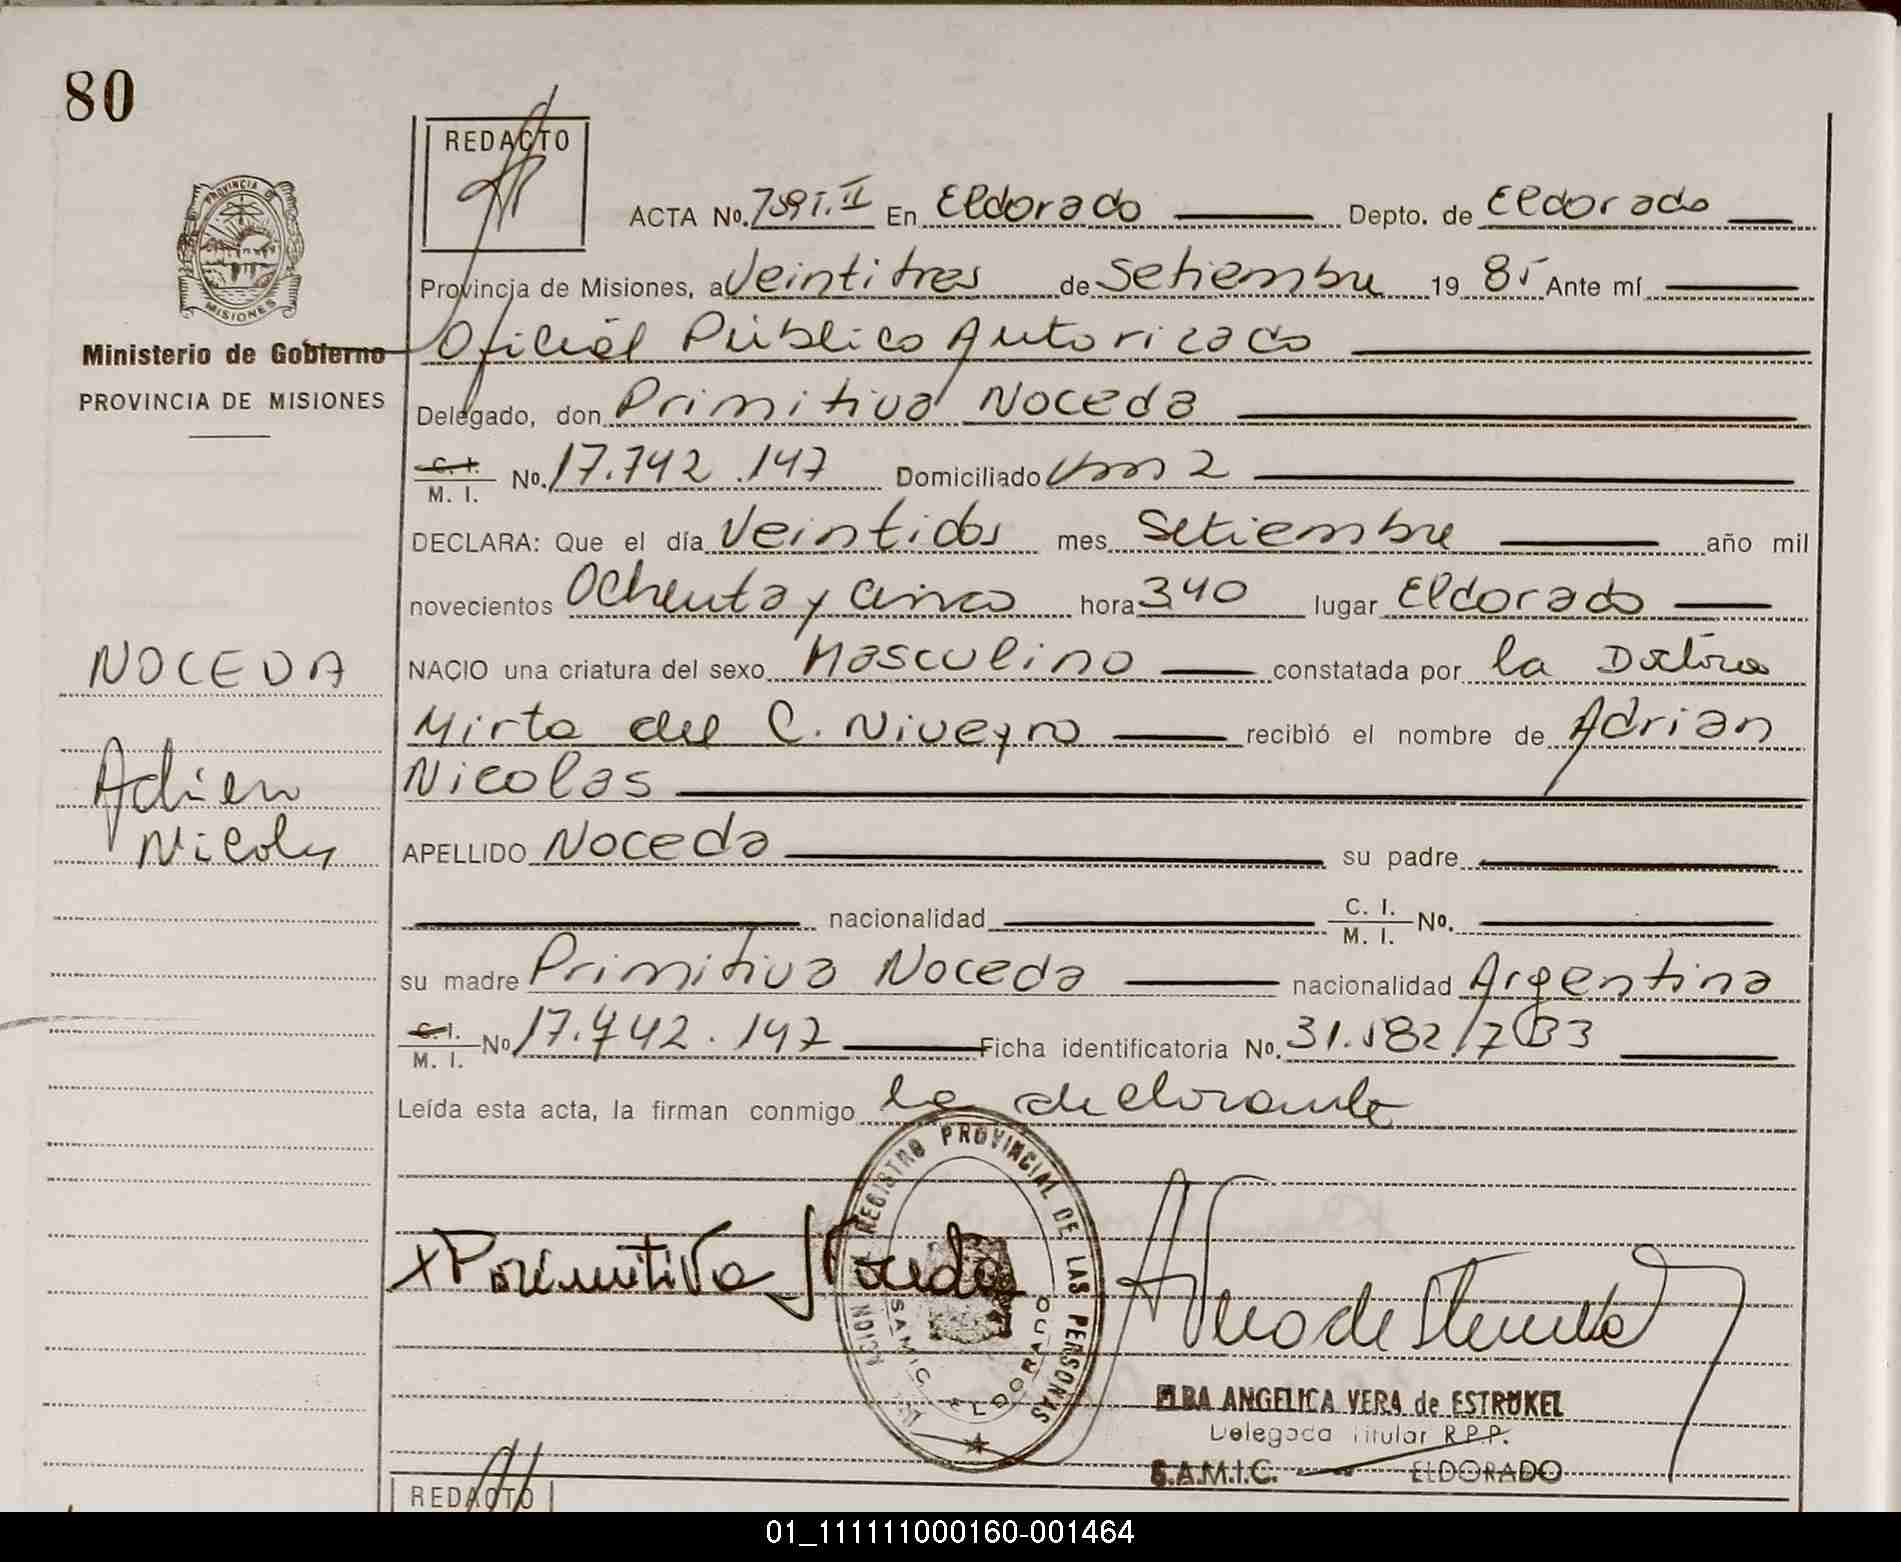 80
REDACTO
PROVINCIA D
MISIONES
ACTA No. 759 T. II En Eldorado Depto. de Eldorado
Provincia de Misiones, a Veintitres de Setiembre 19 85 Ante mí
Ministerio de Gobierno
Oficial Público Autorizado
PROVINCIA DE MISIONES
Delegado, don Primitiva Noceda
C. I. M. I. No. 17.742.147 Domiciliado Km 2
DECLARA: Que el día Veintidos mes Setiembre año mil
novecientos Ochenta y Cinco hora 3,40 lugar Eldorado
NOCEDA
NACIO una criatura del sexo Masculino constatada por la Doctora
Mirta del C. Niveyro recibió el nombre de Adrian
Adrian
Nicolas
Nicolas
APELLIDO Noceda su padre
nacionalidad C. I. M. I. No.
su madre Primitiva Noceda nacionalidad Argentina
C. I. M. I. No 17.742.147 Ficha identificatoria No. 31.182/733
Leída esta acta, la firman conmigo la declarante
REGISTRO PROVINCIAL DE LAS PERSONAS
SAMIC ELDORADO
x Primitiva Noceda
ELBA ANGELICA VERA de ESTRUKEL
Delegada Titular R.P.P.
S.A.M.I.C. ELDORADO
REDACTO
01_111111000160-001464